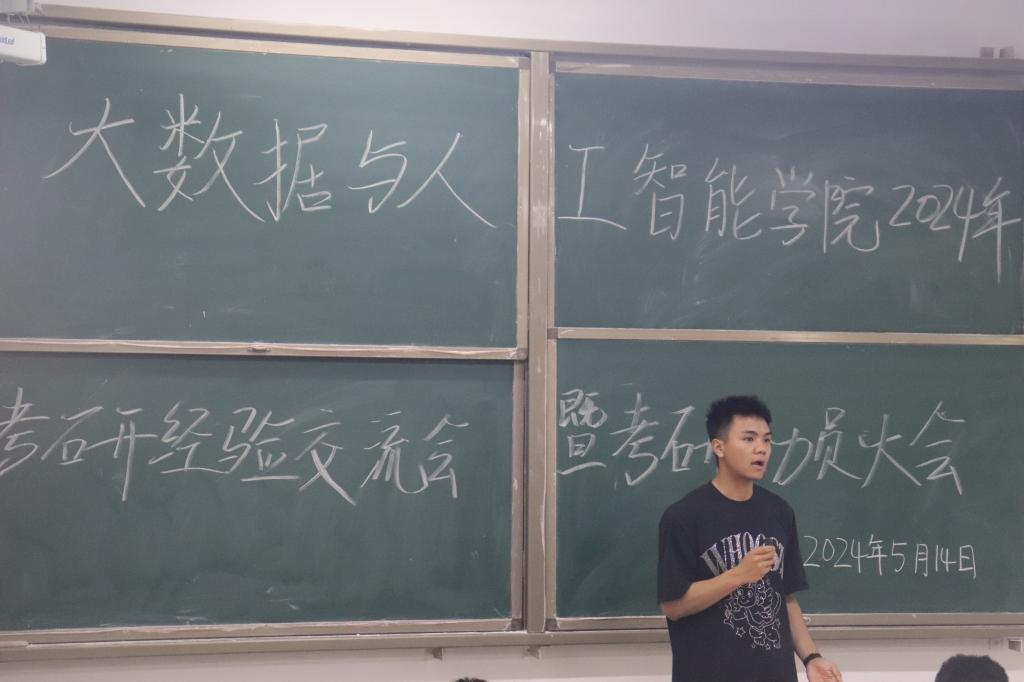 大数据与人工智能学院2024年
考研经验交流会暨考研动员大会
2024年5月14日